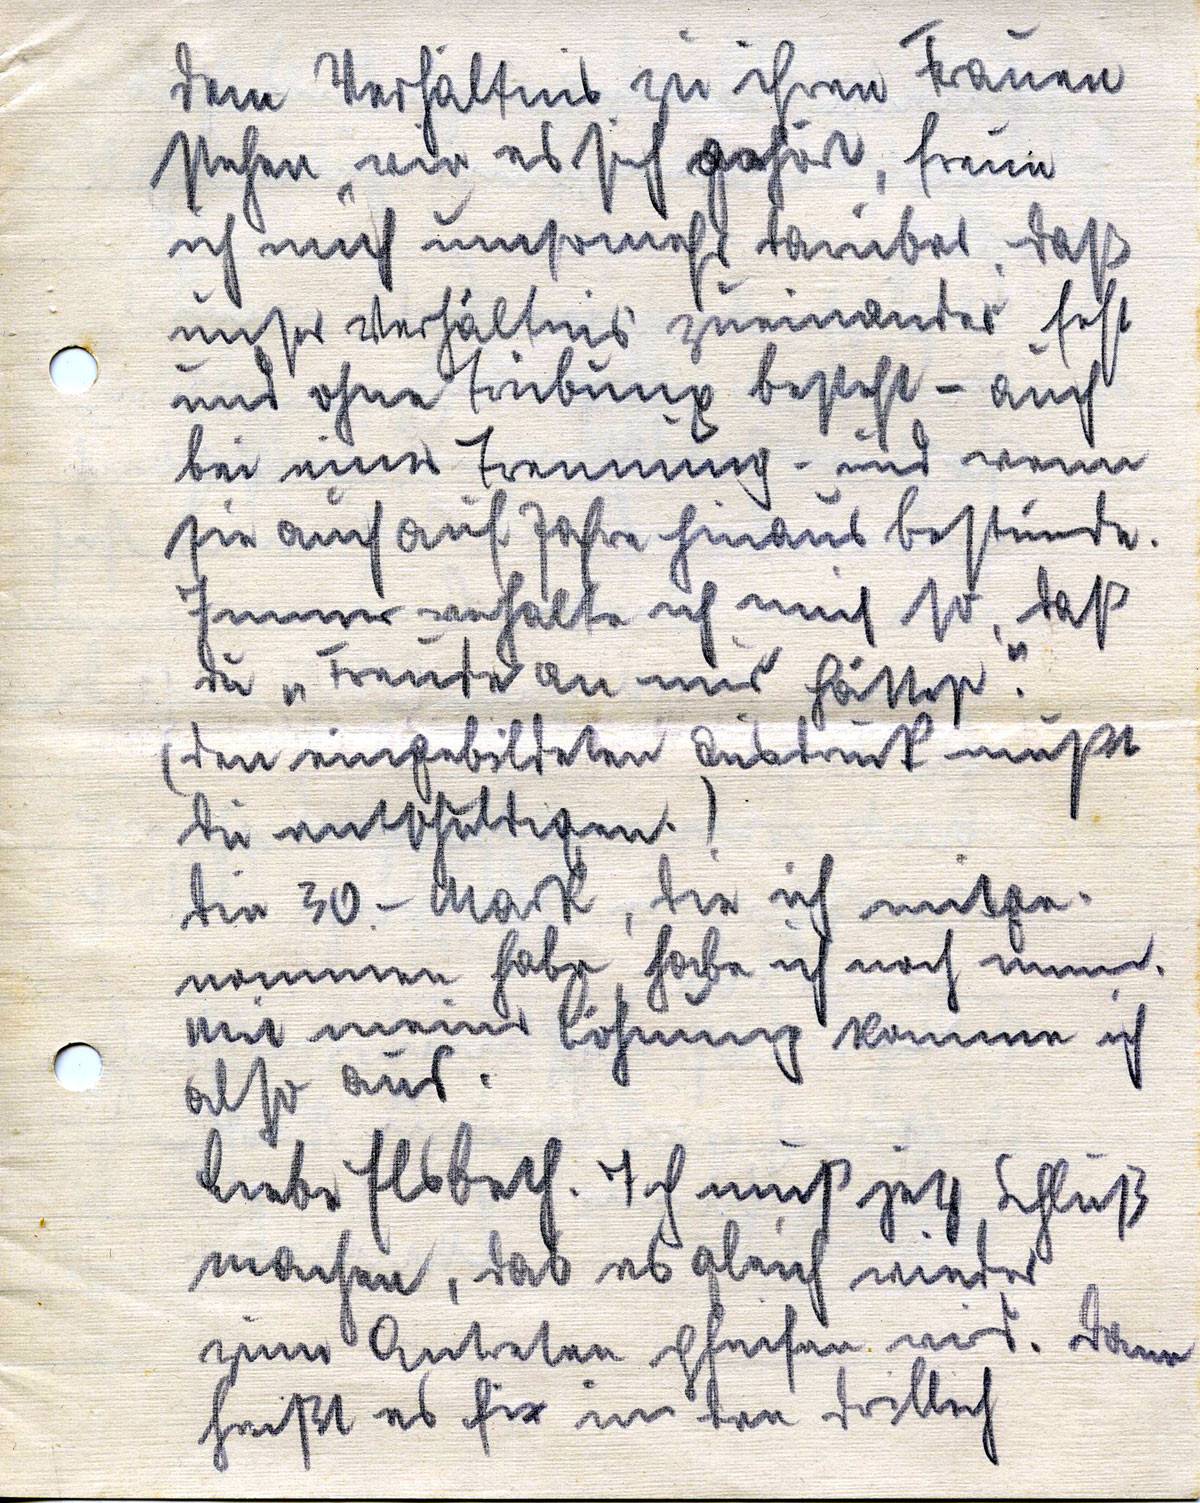 dem Verhältnis zu ihren Frauen
stehen, wie es sich gehört, freue
ich mich umsomehr darüber, daß
unser Verhältnis zueinander fest
und ohne Trübung besteht – auch
bei einer Trennung – und wenn
sie auch auf Jahre hinaus bestünde.
Immer verhalte ich mich so, daß
du „Freude an mir hättest".
(den eingebildeten Ausdruck mußt
du entschuldigen.)
Die 30.– Mark, die ich mitge-
nommen habe, habe ich noch immer.
Mit meiner Löhnung komme ich
also aus.
Liebe Elsbeth. Ich muß jetzt Schluß
machen, das es gleich wieder
zum Antreten pfeifen wird. Dann
heißt es fix in den Drillich